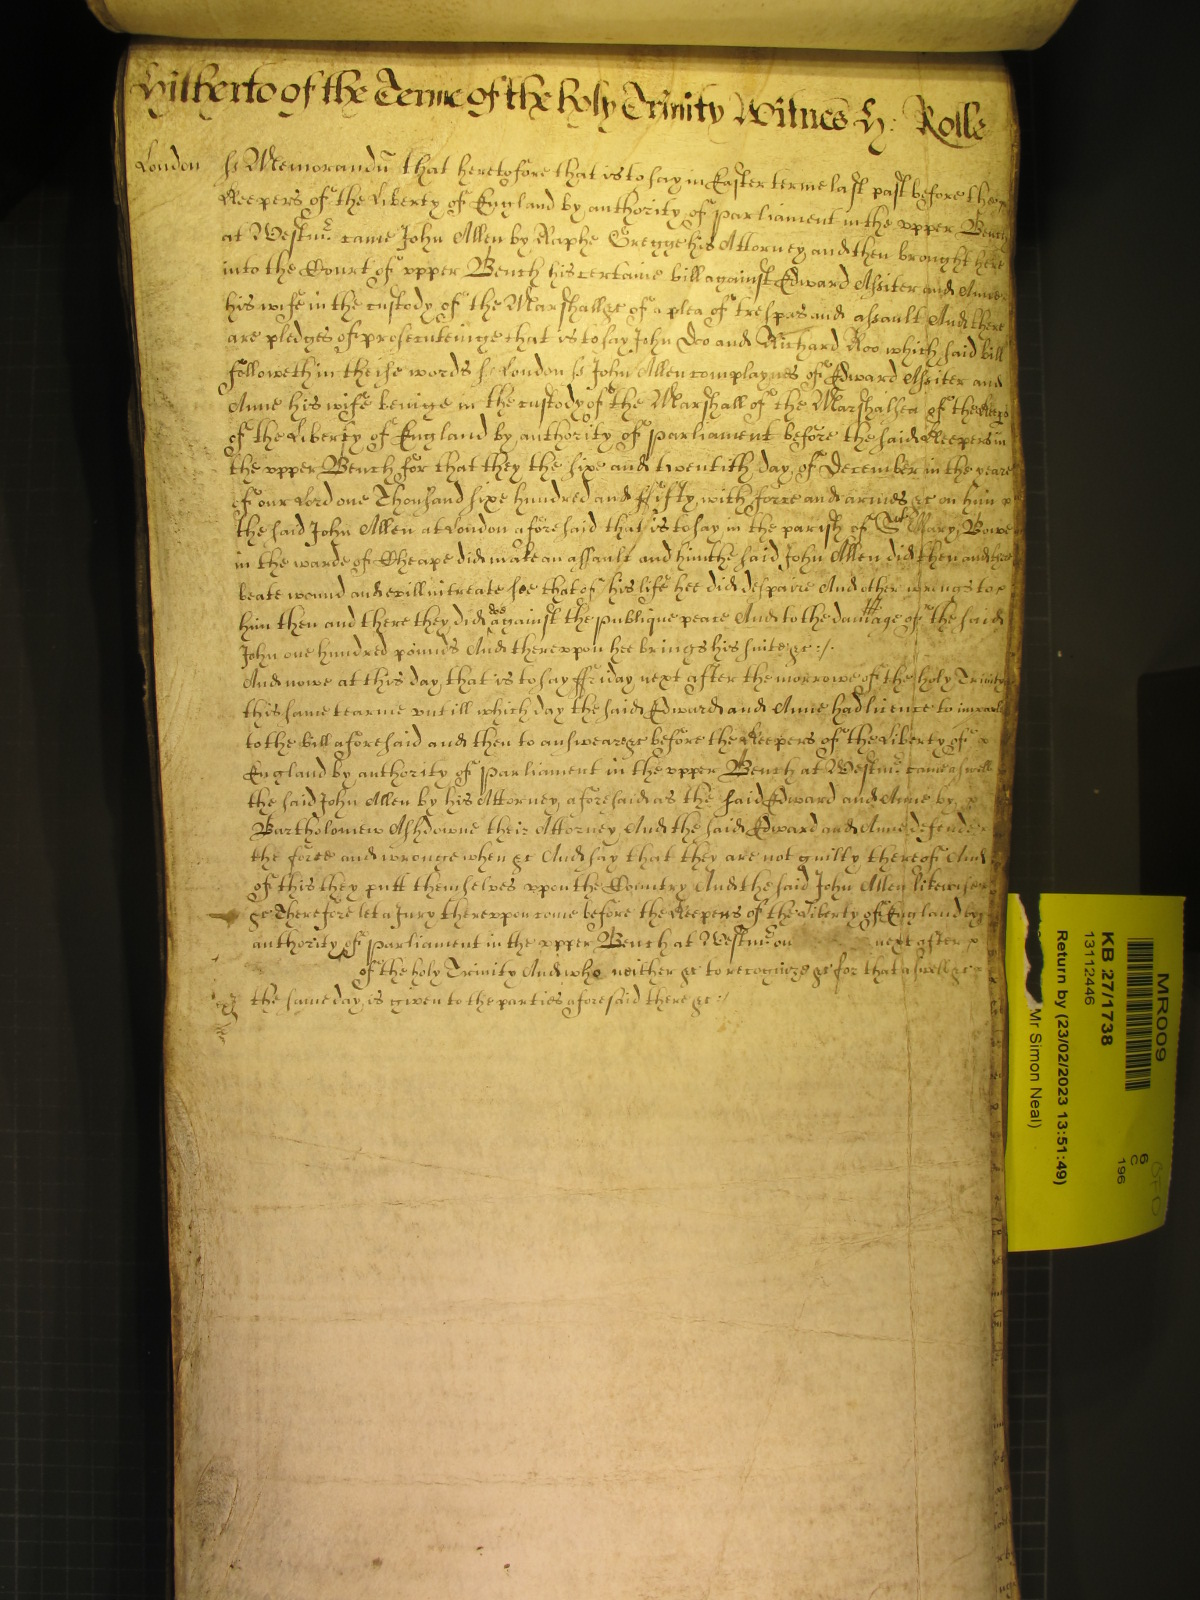 Hitherto of the Terme of the holy Trinity Witnes H: Rolle
London ss Memorandū that heretofore that is to say in Easter terme last past before the
Keepers of the Liberty of England by authority of parliament in the vpper Bench
at Westmr came John Allen by Raphe Gregge his Attorney and then brought here
into the Court of vpper Bench his certaine bill against Edward Assiter and Anne
his wife in the custody of the Marshall &c of a plea of trespas and assault And there
are pledges of prosecuteinge that is to say John Doo and Richard Roo which said bill
followeth in theise words ss London ss John Allen complaynes of Edward Assiter and
Anne his wife beinge in the custody of the Marshall of the Marshalsea of the Keeps
of the Liberty of England by authority of parliament before the said Keepers in
the vpper Bench for that they the sixe and twentith day of December in the yeare
of our Lord one Thousand sixe hundred and ffifty with force and armes &c on him
the said John Allen at London aforesaid that is to say in the parish of St Mary Bowe
in the warde of Cheape did make an assault and him the said John Allen did then and there
beate wound and evill intreate soe that of his life hee did despaire And other wrongs to
him then and there they did doe against the publique peace And to the damage of the said
John one hundred pounds And therevpon hee brings his suite &c :/.
And nowe at this day that is to say ffriday next after the morrowe of the holy Trinity
this same tearme vntill which day the said Edward and Anne had licence to imparle
to the bill aforesaid and then to answeare &c before the Keepers of the Liberty of
England by authority of parliament in the vpper Bench at Westmr came aswell
the said John Allen by his Attorney aforesaid as the said Edward and Anne by
Bartholomew Ashdowne their Attorney And the said Edward and Anne defende
the force and wronge when &c And say that they are not guilty thereof And
of this they putt themselves vpon the Country And the said John Allen likewise
&c Therefore let a Jury therevpon come before the Keepers of the Liberty of England by
authority of parliament in the vpper Bench at Westmr on next after
of the holy Trinity And who neither &c to recognize &c for that aswell &c
the same day is given to the parties aforesaid there &c :/
MR009
KB 27/1738
13112446
6
C
196
Return by (23/02/2023 13:51:49)
Mr Simon Neal)